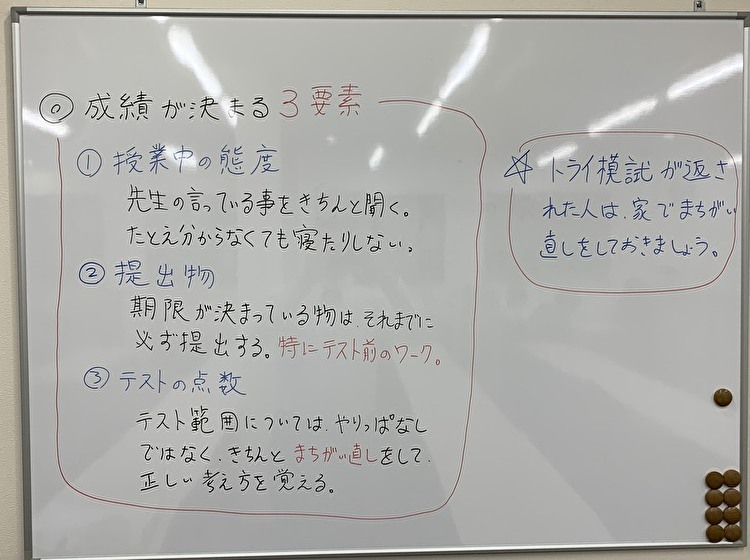 ◎ 成績が決まる3要素
① 授業中の態度
先生の言っている事をきちんと聞く。
たとえ分からなくても寝たりしない。
② 提出物
期限が決まっている物は、それまでに
必ず提出する。特にテスト前のワーク。
③ テストの点数
テスト範囲については、やりっぱなし
ではなく、きちんとまちがい直しをして、
正しい考え方を覚える。
☆ トライ模試が返さ
れた人は、家でまちがい
直しをしておきましょう。